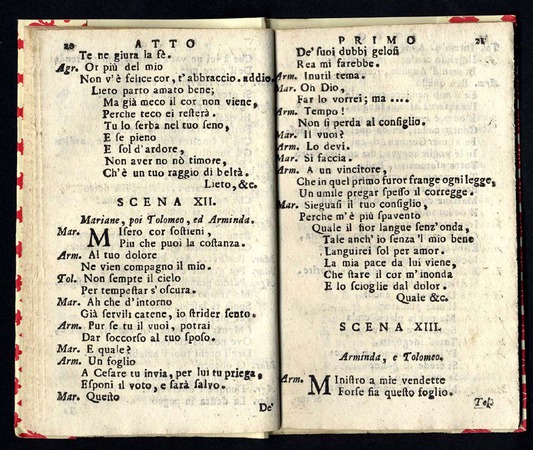 20 ATTO
Te ne giura la fè.
Agr. Or più del mio
Non v'è felice cor, t'abbraccio. addio.
Lieto parto amato bene;
Ma già meco il cor non viene,
Perche teco ei resterà.
Tu lo serba nel tuo seno,
E se pieno
E sol d'ardore,
Non aver no nò timore,
Ch'è un tuo raggio di beltà.
Lieto, &c.
SCENA XII.
Mariane, poi Tolomeo, ed Arminda.
Mar. Misero cor sostieni,
Più che puoi la costanza.
Arm. Al tuo dolore
Ne vien compagno il mio.
Tol. Non sempre il cielo
Per tempestar s'oscura.
Mar. Ah che d'intorno
Già servili catene, io strider sento.
Arm. Pur se tu il vuoi, potrai
Dar soccorso al tuo sposo.
Mar. E quale?
Arm. Un foglio
A Cesare tu invia, per lui tu priega,
Esponi il voto, e sarà salvo.
Mar. Questo
De'
PRIMO 21
De' suoi dubbj gelosi
Rea mi farebbe.
Arm. Inutil tema.
Mar. Oh Dio,
Far lo vorrei; ma ....
Arm. Tempo!
Non si perda al consiglio.
Mar. Il vuoi?
Arm. Lo devi.
Mar. Si faccia.
Arm. A un vincitore,
Che in quel primo furor frange ogni legge,
Un umile pregar spesso il corregge.
Mar. Sieguasi il tuo consiglio,
Perche m'è più spavento
Quale il fior langue senz'onda,
Tale anch'io senza 'l mio bene
Languirei sol per amor.
La mia pace da lui viene,
Che stare il cor m'inonda
E lo scioglie dal dolor.
Quale &c.
SCENA XIII.
Arminda, e Tolomeo.
Arm. Ministro a mie vendette
Forse fia questo foglio.